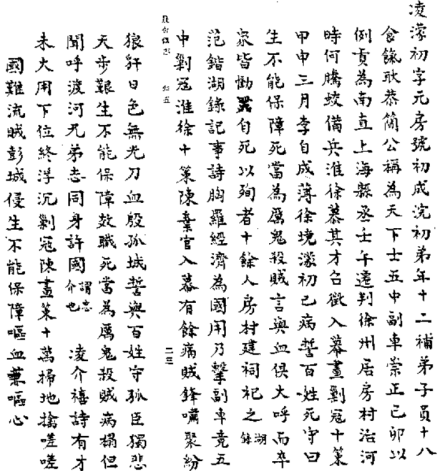 凌濛初字元房號初成浣初弟年十二補弟子員十八
食餼耿恭簡公稱為天下士五中副車崇正己卯以
例貢為南直上海縣丞壬午遷判徐州居房村治河
時何騰蛟備兵淮徐慕其才名徵入幕畫剿寇十策
甲申三月李自成薄徐境濛初已病誓百姓死守曰
生不能保障死當為厲鬼殺賊言與血俱大呼而卒
眾皆慟哭自死以殉者十餘人房村建祠祀之 湖錄
范鍇湖錄記事詩胸羅經濟為國用乃擊副車竟五
中剿寇淮徐十策陳棄官入幕有餘痛賊鋒嘯聚紛
卷五 二三
狼豻日色無光刀血殷孤城誓與百姓守孤臣獨悲
天步艱生不能保障效職死當為厲鬼殺賊病榻但
聞呼渡河兄弟志同身許國 謂忠介也 凌介禧詩有才
未大用下位終浮沉剿寇陳畫策十萬掃地擒嗟嗟
國難流賊彭城侵生不能保障嘔血兼嘔心